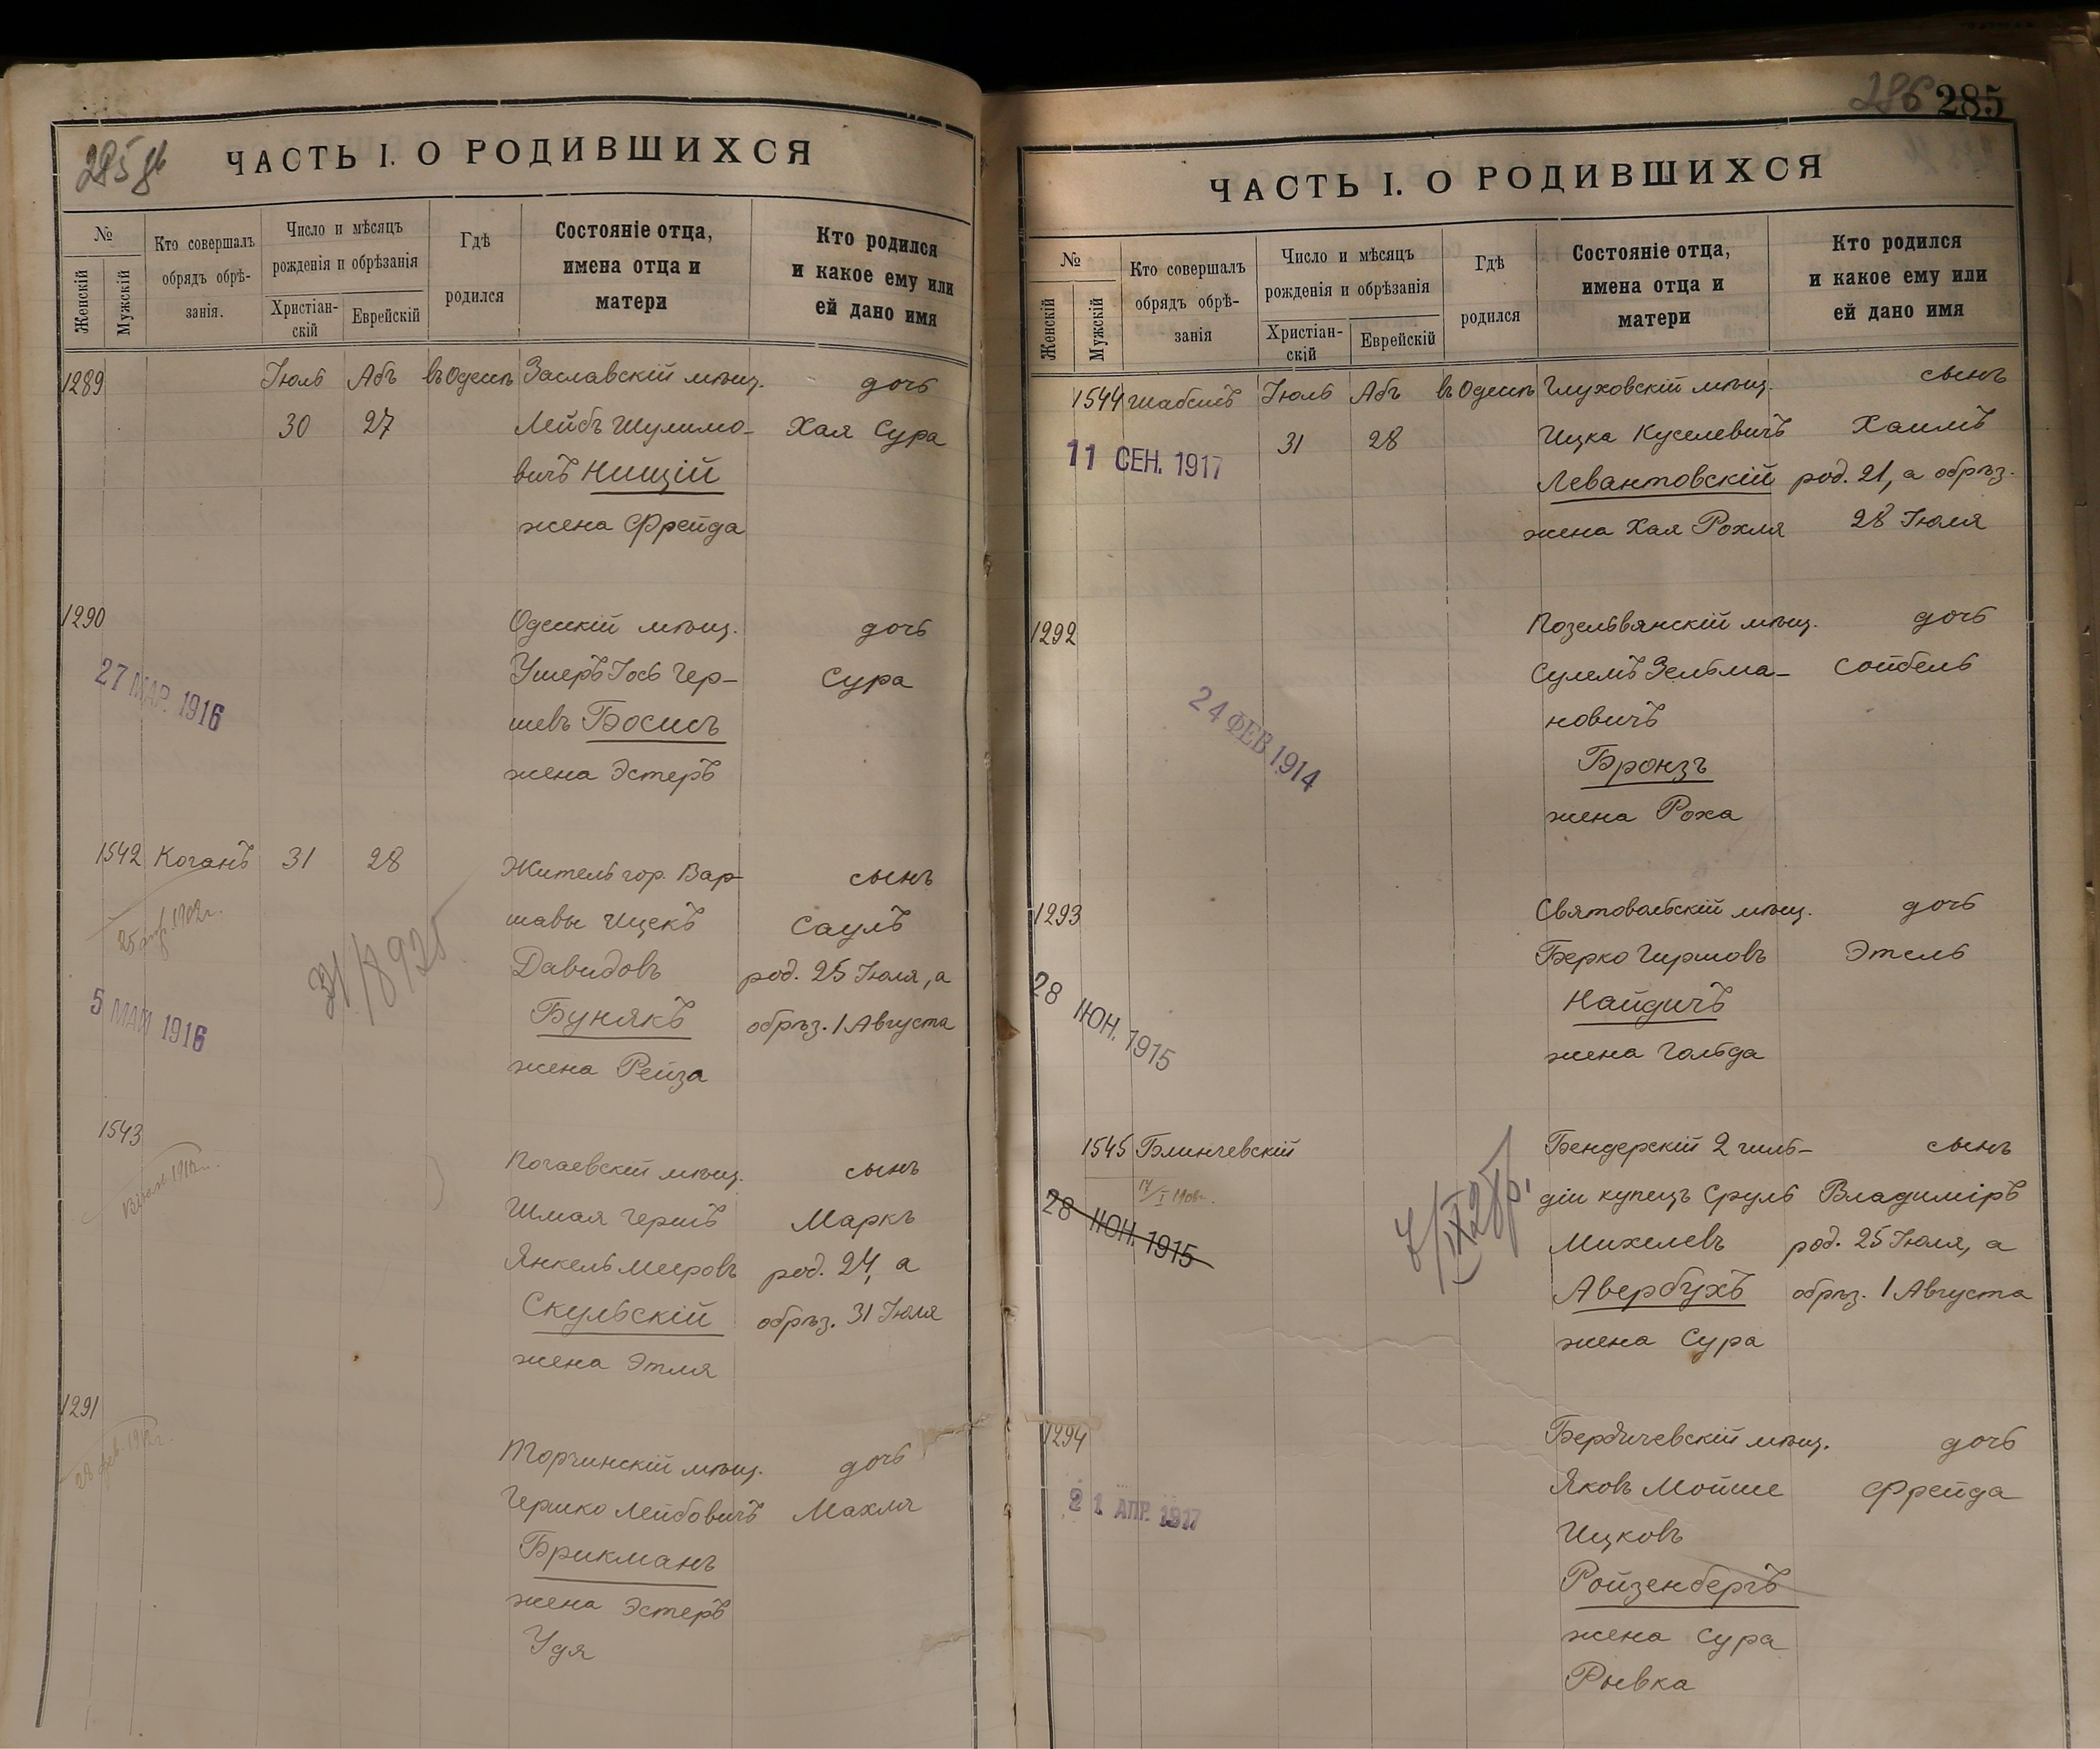 285 об
ЧАСТЬ I. О РОДИВШИХСЯ
№
Женскій
Мужскій
Кто совершалъ
обрядъ обрѣ-
занія.
Число и мѣсяцъ
рожденія и обрѣзанія
Христіан-
скій
Еврейскій
Гдѣ
родился
Состояніе отца,
имена отца и
матери
Кто родился
и какое ему или
ей дано имя
1289 Іюль Абъ въ Одессѣ Заславскій мѣщ. дочь
30 27 Лейбъ Шулимо- Хая Сура
вичъ Нищій
жена Фрейда
1290 Одесскій мѣщ. дочь
Ушеръ Іось Гер- Сура
27 МАР. 1916
шевъ Босисъ
жена Эстеръ
1542 Коганъ 31 28 Житель гор. Вар- сынъ
шавы Ицекъ Саулъ
Давидовъ род. 25 Іюля, а
5 МАЙ 1916
Бунякъ обрѣз. 1 Августа
жена Рейза
1543
Почаевскій мѣщ. сынъ
Шмая Гершъ Маркъ
Янкель Мееровъ род. 24, а
Скульскій обрѣз. 31 Іюля
жена Этля
1291
Торчинскій мѣщ. дочь
Гершко Лейбовичъ Махля
Брикманъ
жена Эстеръ
Удя
286 285
ЧАСТЬ I. О РОДИВШИХСЯ
№
Женскій
Мужскій
Кто совершалъ
обрядъ обрѣ-
занія
Число и мѣсяцъ
рожденія и обрѣзанія
Христіан-
скій
Еврейскій
Гдѣ
родился
Состояніе отца,
имена отца и
матери
Кто родился
и какое ему или
ей дано имя
1544 Шабсисъ Іюль Абъ въ Одессѣ Глуховскій мѣщ. сынъ
11 СЕН. 1917 31 28 Ицка Куселевичъ Хаимъ
Левантовскій род. 21, а обрѣз.
жена Хая Рохля 28 Іюля
1292 Козельвянскій мѣщ. дочь
Сулемъ Зельма- Сойбель
новичъ
24 ФЕВ 1914
Бронзъ
жена Роха
1293 дочь
Берко Гиршовъ Этель
Найдичъ
28 ІЮН. 1915
жена Гольда
1545 Блинчевскій Бендерскій 2 гиль- сынъ
діи купецъ Сруль Владиміръ
28 ІЮН. 1915
Михелевъ род. 25 Іюля, а
Авербухъ обрѣз. 1 Августа
жена Сура
1294 Бердичевскій мѣщ. дочь
21 АПР. 1917
Яковъ Мойше Фрейда
Ицковъ
Ройзенбергъ
жена Сура
Рывка